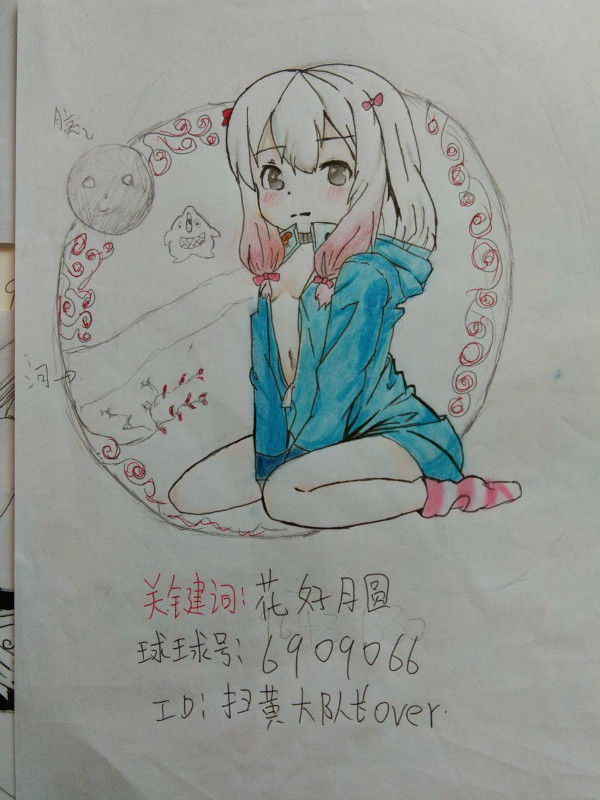 关键词:花好月圆
球球号:6909066
ID:扫黄大队长over.